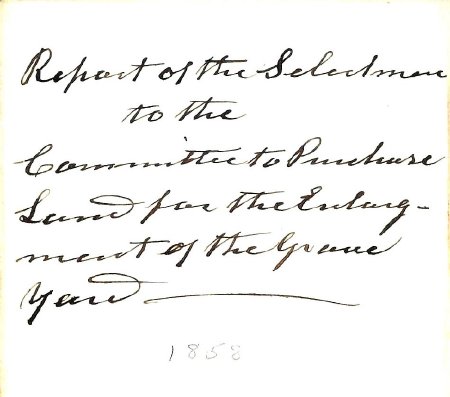 Report of the Selectmen
to the
Committee to Purchase
Land for the Enlarg-
ment of the Grave
Yard
1858